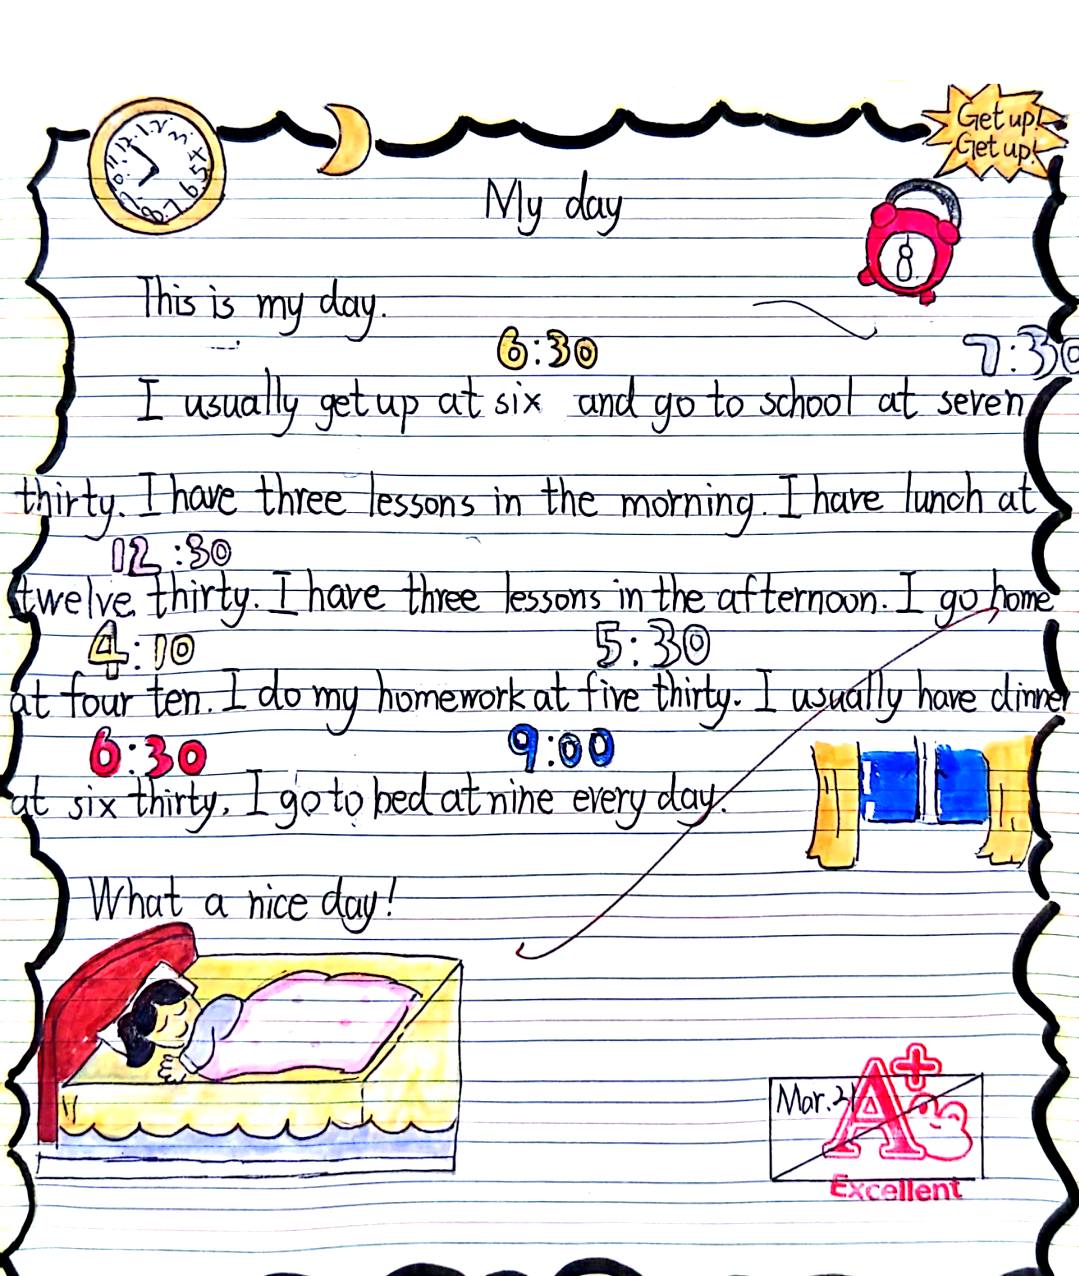 Get up!
Get up!
My day
8
This is my day.
6:30 7:30
I usually get up at six and go to school at seven
thirty. I have three lessons in the morning. I have lunch at
12:30
twelve thirty. I have three lessons in the afternoon. I go home
4:10 5:30
at four ten. I do my homework at five thirty. I usually have dinner
6:30 9:00
at six thirty. I go to bed at nine every day.
What a nice day!
Mar.21
A+
Excellent